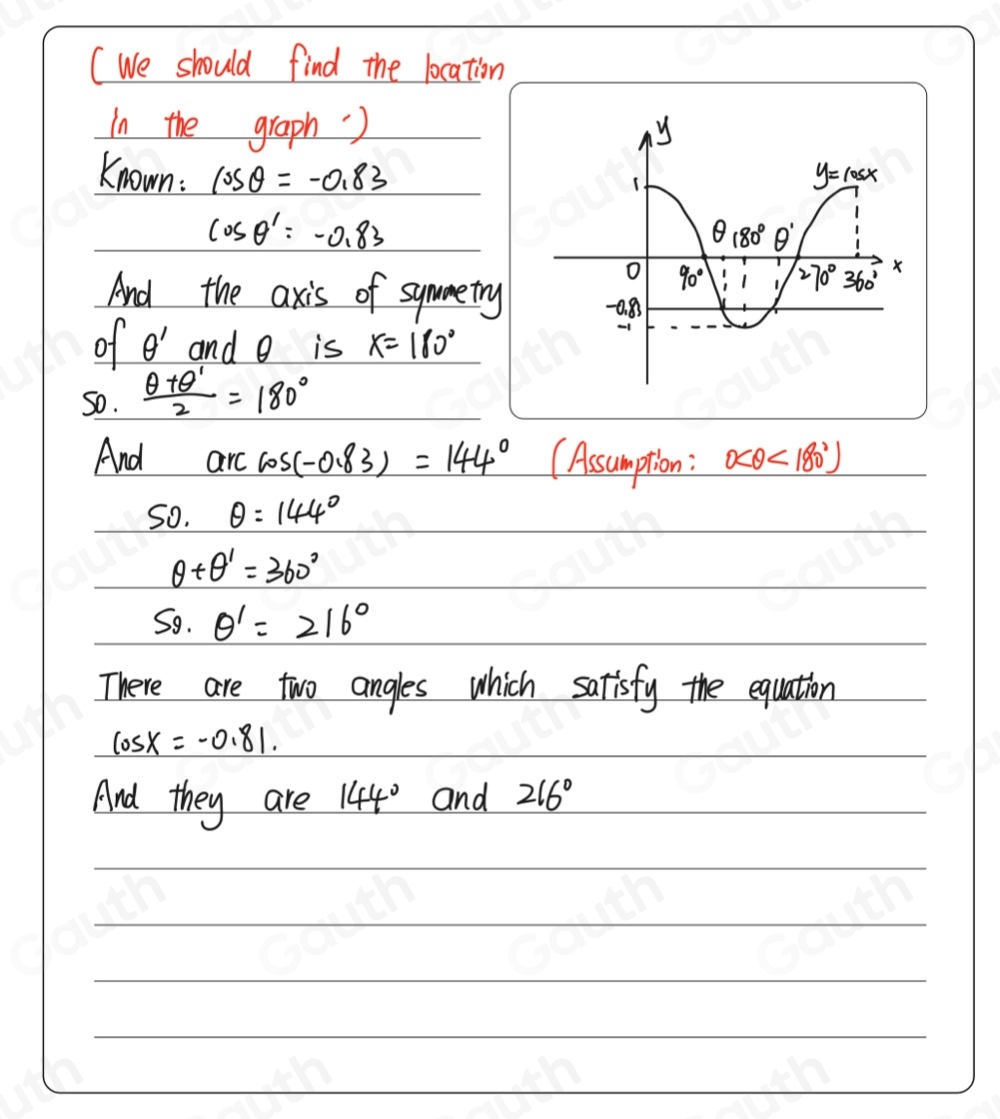 (We should find the location
in the graph.)
Known: cosθ = -0.83
cosθ' = -0.83
And the axis of symmetry
of θ' and θ is x=180°
So. θ+θ'/2 = 180°
y
1
y=cosx
θ 180° θ'
0 90° 270° 360° x
-0.83
-1
And arccos(-0.83) = 144° (Assumption: 0<θ<180°)
SO. θ=144°
θ+θ'=360°
So. θ' = 216°
There are two angles which satisfy the equation
cosx = -0.81.
And they are 144° and 216°
Gauth